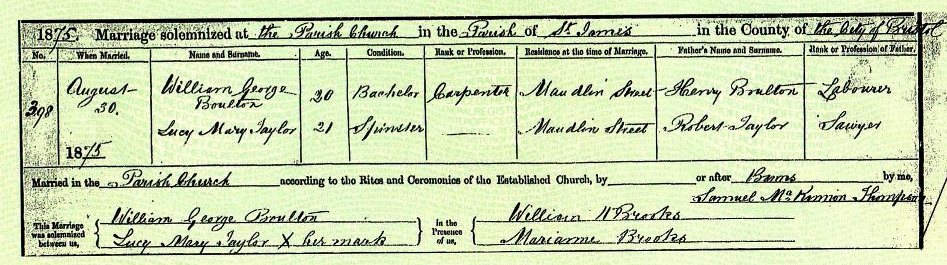 1875. Marriage solemnized at the Parish Church in the Parish of St. James in the County of the City of Bristol
No. When Married. Name and Surname. Age. Condition. Rank or Profession. Residence at the time of Marriage. Father's Name and Surname. Rank or Profession of Father.
398 August 30. 1875 William George Boulton 20 Bachelor Carpenter Maudlin Street Henry Boulton Labourer
Lucy Mary Taylor 21 Spinster —— Maudlin Street Robert Taylor Sawyer
Married in the Parish Church according to the Rites and Ceremonies of the Established Church, by or after Banns by me,
Samuel McKinnon Thompson
This Marriage was solemnized between us, William George Boulton
Lucy Mary Taylor X her mark
In the Presence of us, William H Brooks
Marianne Brooks